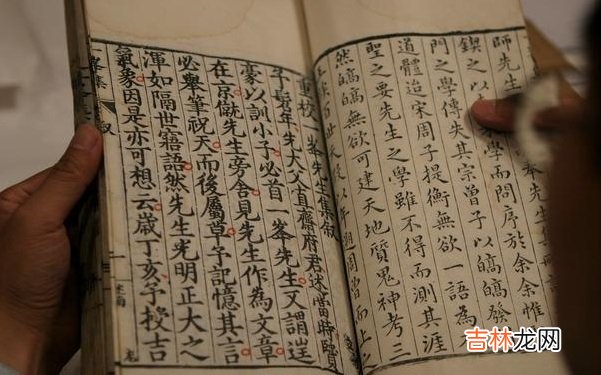 師先生峯先生
鍥之以學而問序於余余惟
門之學傳失其宗曾子以皜皜發
道體迨宋周子提衡無欲一語為
聖之要先生之學雖不得而測其涯
然皜皜無欲可建天地質鬼神考三
百世周曾而上之
重校峯先生集叙
予髫年先大父直齋府君述當時賢
豪以訓小子必首一峯先生又謂
在京邸先生旁舍見先生作為文章
必舉筆祝天而後屬草予記憶其言
渾如隔世寤語然先生光明正大之
氣象因是亦可想云歲丁亥予授吉
峯集 叙 一
吉林龙网